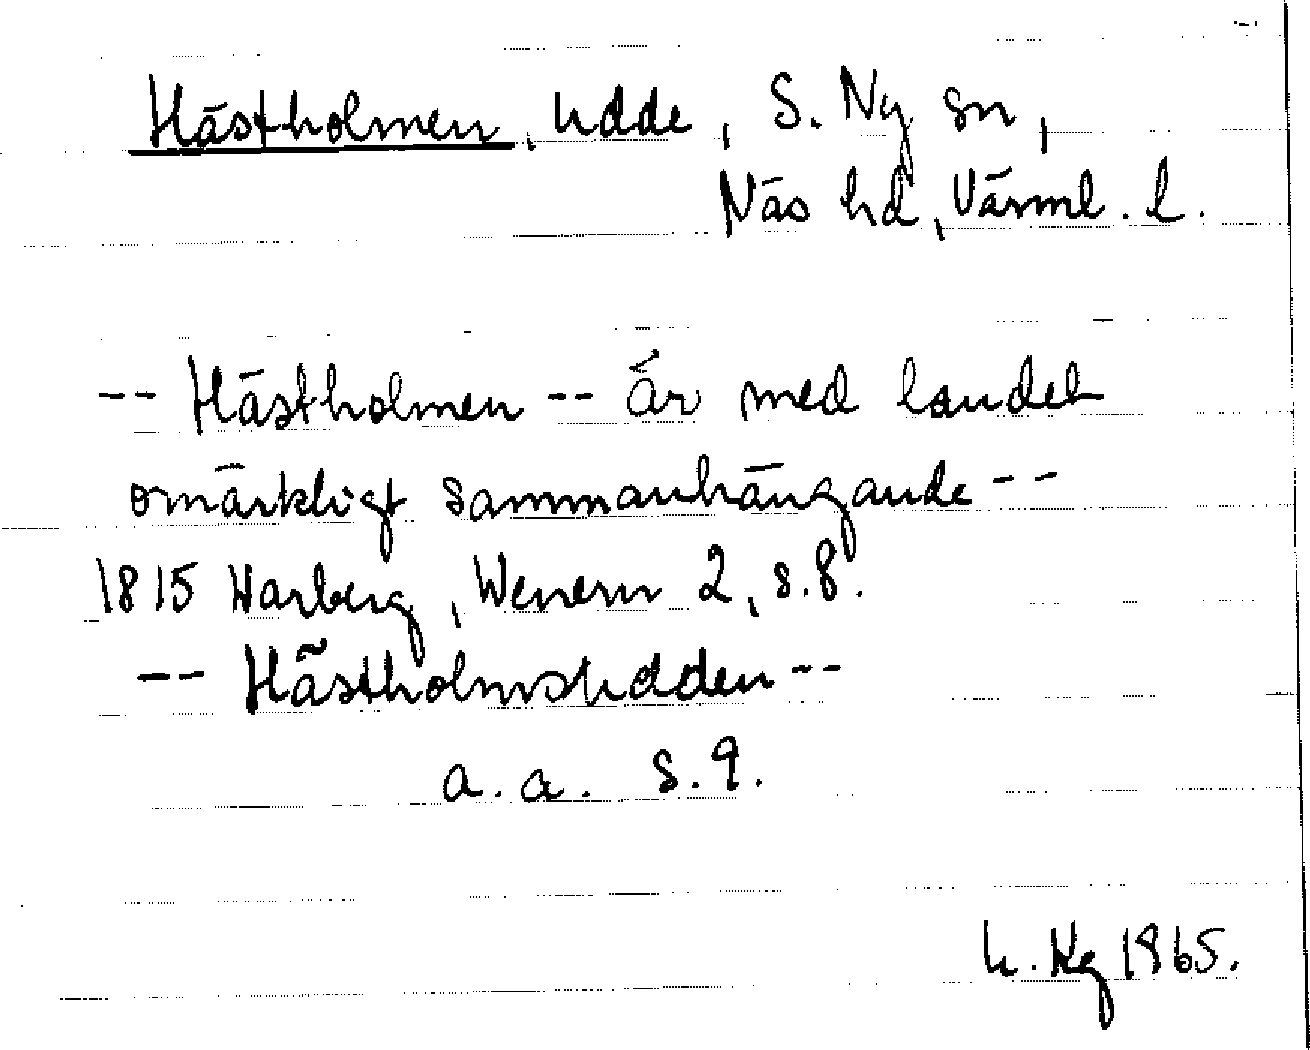 Hästholmen, udde, S. Ny sn,
Näs hd, Värml. l.
-- Hästholmen -- är med landet
omärkligt sammanhängande --
1815 Warberg, Wenern 2, s.8.
-- Hästholmsudden --
a.a. s.9.
1965.